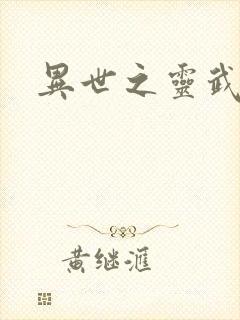 異世之靈武
黄继滙